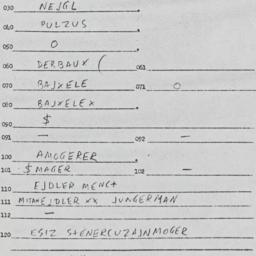 030 NEJGL.
040 PULZUS.
050 O.
060 DERBAUX ( 061
070 BAJXELE 071 O
080 BAJXELEX.
090 $
091 — 092 —
100 AMOGERER.
101 $ MAGER 102 —
110 EJDLER MENC+
111 EJDLER XX JUNGERMAN
112 —
120